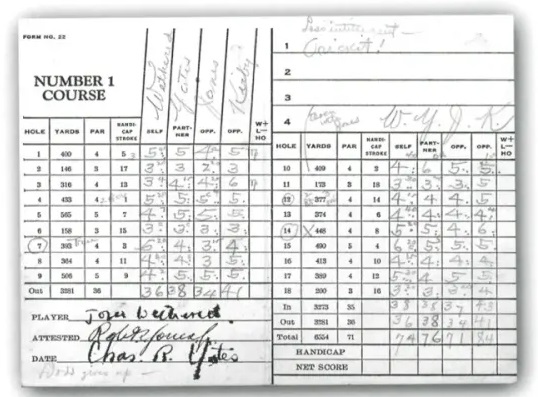 FORM NO. 22
NUMBER 1
COURSE
Wethered Yates Jones Kirby
HOLE YARDS PAR HANDI-CAP STROKE SELF PART-NER OPP. OPP. W+ L— HO
1 400 4 5 5 5 4 5
2 146 3 17 3 3 2 3
3 316 4 13 3 4 4 6
4 433 4 5 5 5 5
5 565 5 7 4 5 5 5
6 158 3 15 3 3 3 3
7 393 4 3 4 3 4
8 364 4 11 4 4 3 5
9 506 5 9 4 5 5 5
Out 3281 36 36 38 34 41
PLAYER Joyce Wethered
ATTESTED
DATE Chas. R. Yates
gives up —
1
2
3
4
W. Y. J. K.
HOLE YARDS PAR HANDI-CAP STROKE SELF PART-NER OPP. OPP. W+ L— HO
10 409 4 2 4 6 5 5
11 173 3 18 3 3 3 5
12 377 4 14 4 4 4 5
13 374 4 6 4 4 4 4
14 448 4 8 5 5 4 6
15 490 5 4 6 5 5 5
16 413 4 10 4 4 4 4
17 389 4 12 5 4 5 5
18 200 3 16 3 3 3 4
In 3273 35 38 38 37 43
Out 3281 36 36 38 34 41
Total 6554 71 74 76 71 84
HANDICAP
NET SCORE